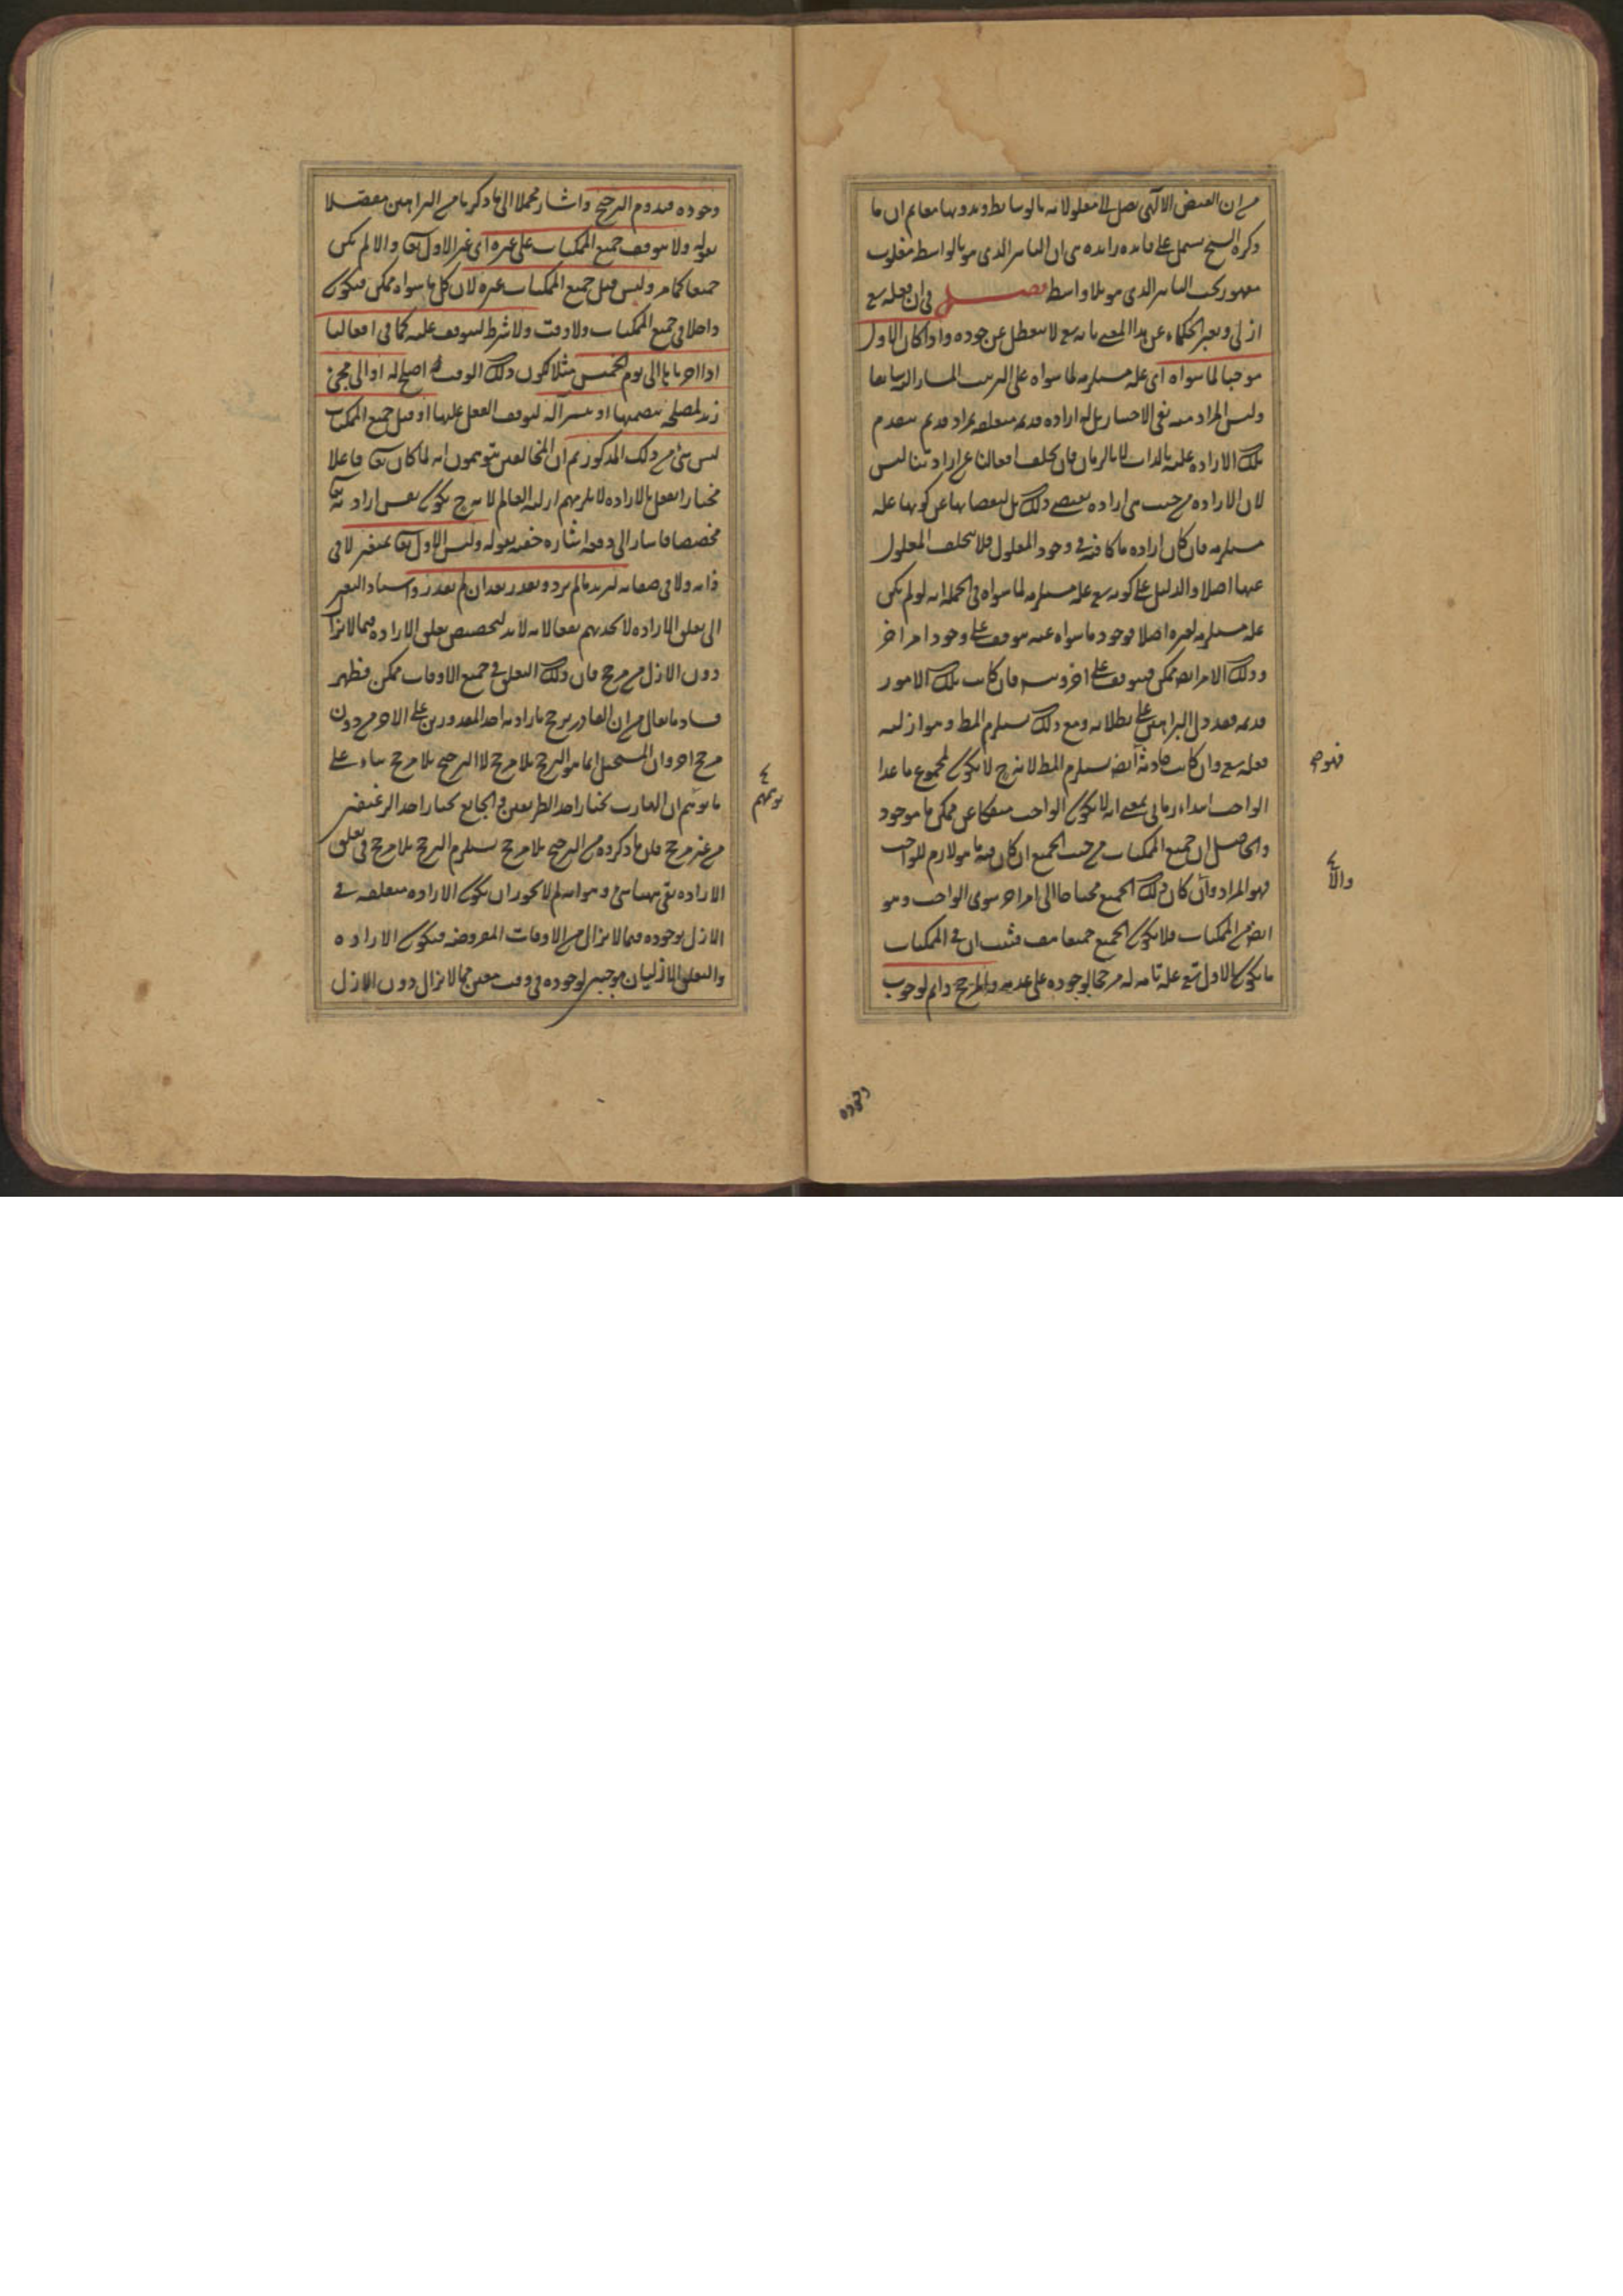 من ان الفيض الالهى يصل الى معلولاته بالوسايط وبدونها معا ثم ان ما
ذكره الشيخ يشتمل على فايده زايده هى ان التاثير الذى هو بالواسطه مغلوب
مقهور تحت التاثير الذى هو بلا واسطه فصل فى ان فعله تع
ازلى ويعبر الحكماء عن هذا المعنى بانه تع لا يتعطل عن جوده واذا كان الاول
موجبا لما سواه اى علة مستلزمه لما سواه على الترتيب المشار اليه سابقا
وليس المراد منه نفى الاختيار بل له اراده قديمه متعلقه بمراد قديم يتقدم
تلك الاراده عليه بالذات لا بالزمان فان تخلف افعالنا عن ارادتنا ليس
لان الاراده من حيث هى اراده يقتضى ذلك بل لنقصانها عن كونها علة
مستلزمه فان كان اراده ما كافيه فى وجود المعلول فلا يتخلف المعلول
عنها اصلا والدليل على كونه تع علة مستلزمه لما سواه فى الجمله انه لو لم يكن
علة مستلزمه لغيره اصلا فوجود ما سواه عنه موقوف على وجود امر اخر
وذلك الامر ايضا ممكن فيتوقف على اخر وس فان كانت تلك الامور
قديمه فقد دل البراهين على بطلانه ومع ذلك يستلزم المط وهو ازليه
فعله تع وان كانت حادثة ايضا يستلزم المط لانه ح لا يكون لمجموع ما عدا
الواجب ابتداء زمانى بمعنى انه لا يكون الواجب منفكا عن ممكن ما موجود
والحاصل ان جميع الممكنات من حيث الجميع ان كان فيه ما هو لازم للواجب
فهو المراد وان كان ذلك الجميع محتاجا الى امر اخر سوى الواجب وهو
ايضا من الممكنات فلا يكون الجميع جميعا هف فثبت ان فى الممكنات
ما يكون الاول تع علة تامه له مرجحا لوجوده على عدمه والمرجح دايم لوجوب
فهو ح
والا
وجوده
وجوده فيدوم الترجيح واشار مجملا الى ما ذكرنا من البراهين مفصلا
بقوله ولا يتوقف جميع الممكنات على غيره اى غير الاول تعا والا لم يكن
جميعا كما مر وليس قبل جميع الممكنات غيره لان كل ما سواه ممكن فيكون
داخلا فى جميع الممكنات ولا وقت ولا شرط ليتوقف عليه كما فى افعالنا
اذا اخرناها الى يوم الخميس مثلا لكون ذلك الوقت اصلح له او الى مجئ
زيد لمصلحه يتضمنها او تيسر اله ليتوقف الفعل عليها اذ قبل جميع الممكنات
ليس شئ من ذلك المذكور ثم ان المخالفين يتوهمون انه لما كان تعا فاعلا
مختارا يفعل بالاراده لا يلزمهم ازليه العالم لانه ح يكون نفس ارادته تعا
مخصصا فاشار الى دفعه اشاره خفيه بقوله وليس الاول تعا بمتغير لا فى
ذاته ولا فى صفاته ليريد ما لم يرد ويقدر بعد ان لم يقدر واسناد التغير
الى تعلق الاراده لا يجديهم نفعا لانه لا بد لتخصيص تعلق الاراده فيما لا يزال
دون الازل من مرجح فان ذلك التعلق فى جميع الاوقات ممكن فظهر
فساد ما يقال من ان القادر يرجح بارادته احد المقدورين على الاخر من دون
مرجح اخر وان المستحيل انما هو الترجح بلا مرجح لا الترجيح بلا مرجح بناء على
ما يوهم ان الهارب يختار احد الطريقين والجايع يختار احد الرغيفين
من غير مرجح فان ما ذكروه من الترجيح بلا مرجح يستلزم الترجح بلا مرجح فى تعلق
الاراده بقى ههنا شئ وهو انه لم لا يجوز ان يكون الاراده متعلقه فى
الازل بوجوده فيما لا يزال من الاوقات المفروضه فيكون الاراده
والتعلق الازليان موجبين لوجوده فى وقت معين مما لا يزال دون الازل
توهم